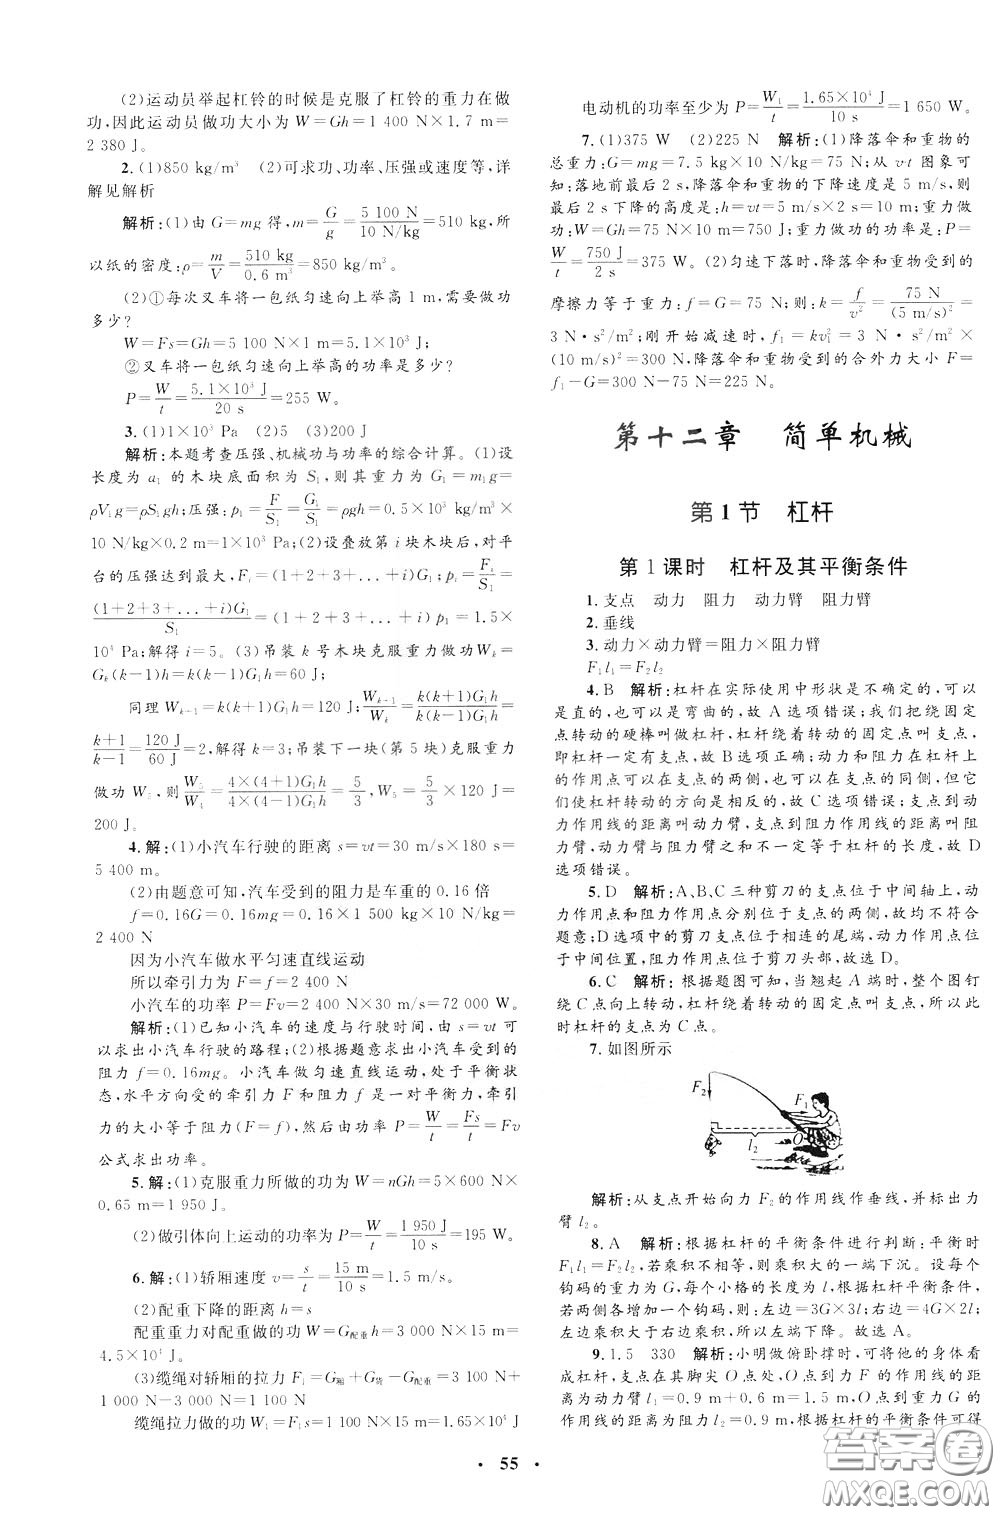 (2)运动员举起杠铃的时候是克服了杠铃的重力在做
功,因此运动员做功大小为 W=Gh=1 400 N×1.7 m=
2 380 J。
2. (1)850 kg/m³ (2)可求功、功率、压强或速度等,详
解见解析
解析:(1)由 G=mg 得,m=G/g=5 100 N/10 N/kg=510 kg,所
以纸的密度:ρ=m/V=510 kg/0.6 m³=850 kg/m³。
(2)①每次叉车将一包纸匀速向上举高 1 m,需要做功
多少?
W=Fs=Gh=5 100 N×1 m=5.1×10³ J;
②叉车将一包纸匀速向上举高的功率是多少?
P=W/t=5.1×10³ J/20 s=255 W。
3. (1)1×10³ Pa (2)5 (3)200 J
解析:本题考查压强、机械功与功率的综合计算。(1)设
长度为 a₁ 的木块底面积为 S₁,则其重力为 G₁=m₁g=
ρV₁g=ρS₁gh;压强:p₁=F/S₁=G₁/S₁=ρgh=0.5×10³ kg/m³×
10 N/kg×0.2 m=1×10³ Pa;(2)设叠放第 i 块木块后,对平
台的压强达到最大,Fᵢ=(1+2+3+…+i)G₁;pᵢ=Fᵢ/S₁=
(1+2+3+…+i)G₁/S₁=(1+2+3+…+i)p₁=1.5×
10⁴ Pa;解得 i=5。(3)吊装 k 号木块克服重力做功Wₖ=
Gₖ(k-1)h=k(k-1)G₁h=60 J;
同理 Wₖ₋₁=k(k+1)G₁h=120 J;Wₖ₋₁/Wₖ=k(k+1)G₁h/k(k-1)G₁h=
k+1/k-1=120 J/60 J=2,解得 k=3;吊装下一块(第 5 块)克服重力
做功 W₅,则W₅/W₄=4×(4+1)G₁h/4×(4-1)G₁h=5/3,W₅=5/3×120 J=
200 J。
4. 解:(1)小汽车行驶的距离 s=vt=30 m/s×180 s=
5 400 m。
(2)由题意可知,汽车受到的阻力是车重的 0.16 倍
f=0.16G=0.16mg=0.16×1 500 kg×10 N/kg=
2 400 N
因为小汽车做水平匀速直线运动
所以牵引力为 F=f=2 400 N
小汽车的功率 P=Fv=2 400 N×30 m/s=72 000 W。
解析:(1)已知小汽车的速度与行驶时间,由 s=vt 可
以求出小汽车行驶的路程;(2)根据题意求出小汽车受到的
阻力 f=0.16mg。小汽车做匀速直线运动,处于平衡状
态,水平方向受的牵引力 F 和阻力 f 是一对平衡力,牵引
力的大小等于阻力(F=f),然后由功率 P=W/t=Fs/t=Fv
公式求出功率。
5. 解:(1)克服重力所做的功为 W=nGh=5×600 N×
0.65 m=1 950 J。
(2)做引体向上运动的功率为 P=W/t=1 950 J/10 s=195 W。
6. 解:(1)轿厢速度 v=s/t=15 m/10 s=1.5 m/s。
(2)配重下降的距离 h=s
配重重力对配重做的功 W=G配重h=3 000 N×15 m=
4.5×10⁴ J。
(3)缆绳对轿厢的拉力 F₁=G厢+G货-G配重=3 100 N+
1 000 N-3 000 N=1 100 N
缆绳拉力做的功 W₁=F₁s=1 100 N×15 m=1.65×10⁴ J
电动机的功率至少为 P=W₁/t=1.65×10⁴ J/10 s=1 650 W。
7. (1)375 W (2)225 N 解析:(1)降落伞和重物的
总重力:G=mg=7.5 kg×10 N/kg=75 N;从 vt 图象可
知:落地前最后 2 s,降落伞和重物的下降速度是 5 m/s,则
最后 2 s下降的高度是:h=vt=5 m/s×2 s=10 m;重力做
功:W=Gh=75 N×10 m=750 J;重力做功的功率是:P=
W/t=750 J/2 s=375 W。(2)匀速下落时,降落伞和重物受到的
摩擦力等于重力:f=G=75 N;则:k=f/v²=75 N/(5 m/s)²=
3 N·s²/m²;刚开始减速时,f₁=kv₁²=3 N·s²/m²×
(10 m/s)²=300 N,降落伞和重物受到的合外力大小 F=
f₁-G=300 N-75 N=225 N。
第十二章 简单机械
第 1 节 杠杆
第 1 课时 杠杆及其平衡条件
1. 支点 动力 阻力 动力臂 阻力臂
2. 垂线
3. 动力×动力臂=阻力×阻力臂
F₁l₁=F₂l₂
4. B 解析:杠杆在实际使用中形状是不确定的,可以
是直的,也可以是弯曲的,故 A 选项错误;我们把绕固定
点转动的硬棒叫做杠杆,杠杆绕着转动的固定点叫支点,
即杠杆一定有支点,故 B 选项正确;动力和阻力在杠杆上
的作用点可以在支点的两侧,也可以在支点的同侧,但它
们使杠杆转动的方向是相反的,故 C 选项错误;支点到动
力作用线的距离叫动力臂,支点到阻力作用线的距离叫阻
力臂,动力臂与阻力臂之和不一定等于杠杆的长度,故 D
选项错误。
5. D 解析:A、B、C 三种剪刀的支点位于中间轴上,动
力作用点和阻力作用点分别位于支点的两侧,故均不符合
题意;D 选项中的剪刀支点位于相连的尾端,动力作用点位
于中间位置,阻力作用点位于剪刀头部,故选 D。
6. C 解析:根据题图可知,当翘起 A 端时,整个图钉
绕 C 点向上转动,杠杆绕着转动的固定点叫支点,所以此
时杠杆的支点为 C 点。
7. 如图所示
F₂
F₁
O
l₂
解析:从支点开始向力 F₂ 的作用线作垂线,并标出力
臂 l₂。
8. A 解析:根据杠杆的平衡条件进行判断:平衡时
F₁l₁=F₂l₂,若乘积不相等,则乘积大的一端下沉。设每个
钩码的重力为 G,每个小格的长度为 l,根据杠杆平衡条件,
若两侧各增加一个钩码,则:左边=3G×3l;右边=4G×2l;
左边乘积大于右边乘积,所以左端下降。故选 A。
9. 1.5 330 解析:小明做俯卧撑时,可将他的身体看
成杠杆,支点在其脚尖 O 点处,O点到力 F 的作用线的距
离为动力臂 l₁=0.9 m+0.6 m=1.5 m,O 点到重力 G 的
作用线的距离为阻力臂 l₂=0.9 m,根据杠杆的平衡条件可得
· 55 ·
答案卷
MXQE.COM